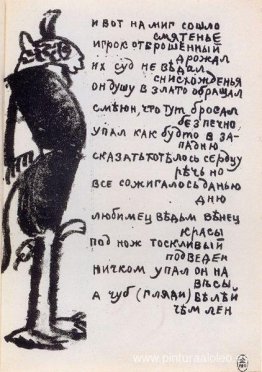 И ВОТ НА МИГ СОШЛО
СМЯТЕНЬЕ
ИГРОК ОТБРОШЕННЫЙ
ДРОЖАЛ
ИХ СУД НЕ ВѢДАЛ
СНИСХОЖДЕНЬЯ
ОН ДУШУ В ЗЛАТО ОБРАЩАЛ
СМѢЮН, ЧТО ТУТ БРОСАЛ
БЕЗПЕЧНО,
УПАЛ КАК БУДТО В ЗА-
ПАДНЮ
СКАЗАТЬ ХОТѢЛОСЬ СЕРДЦУ
РѢЧЬ НО
ВСЕ СОЖИГАЛОСЬ ДАНЬЮ
ДНЮ
ЛЮБИМЕЦ ВѢДЬМ ВѢНЕЦ
КРАСЫ
ПОД НОЖ ТОСКЛИВЫЙ
ПОДВЕДЕН
НИЧКОМ УПАЛ ОН НА
ВѢСЫ
А ЧУБ (ГЛЯДИ) БѢЛѢЙ
ЧѢМ ЛЕН
www.pinturaaloleo.